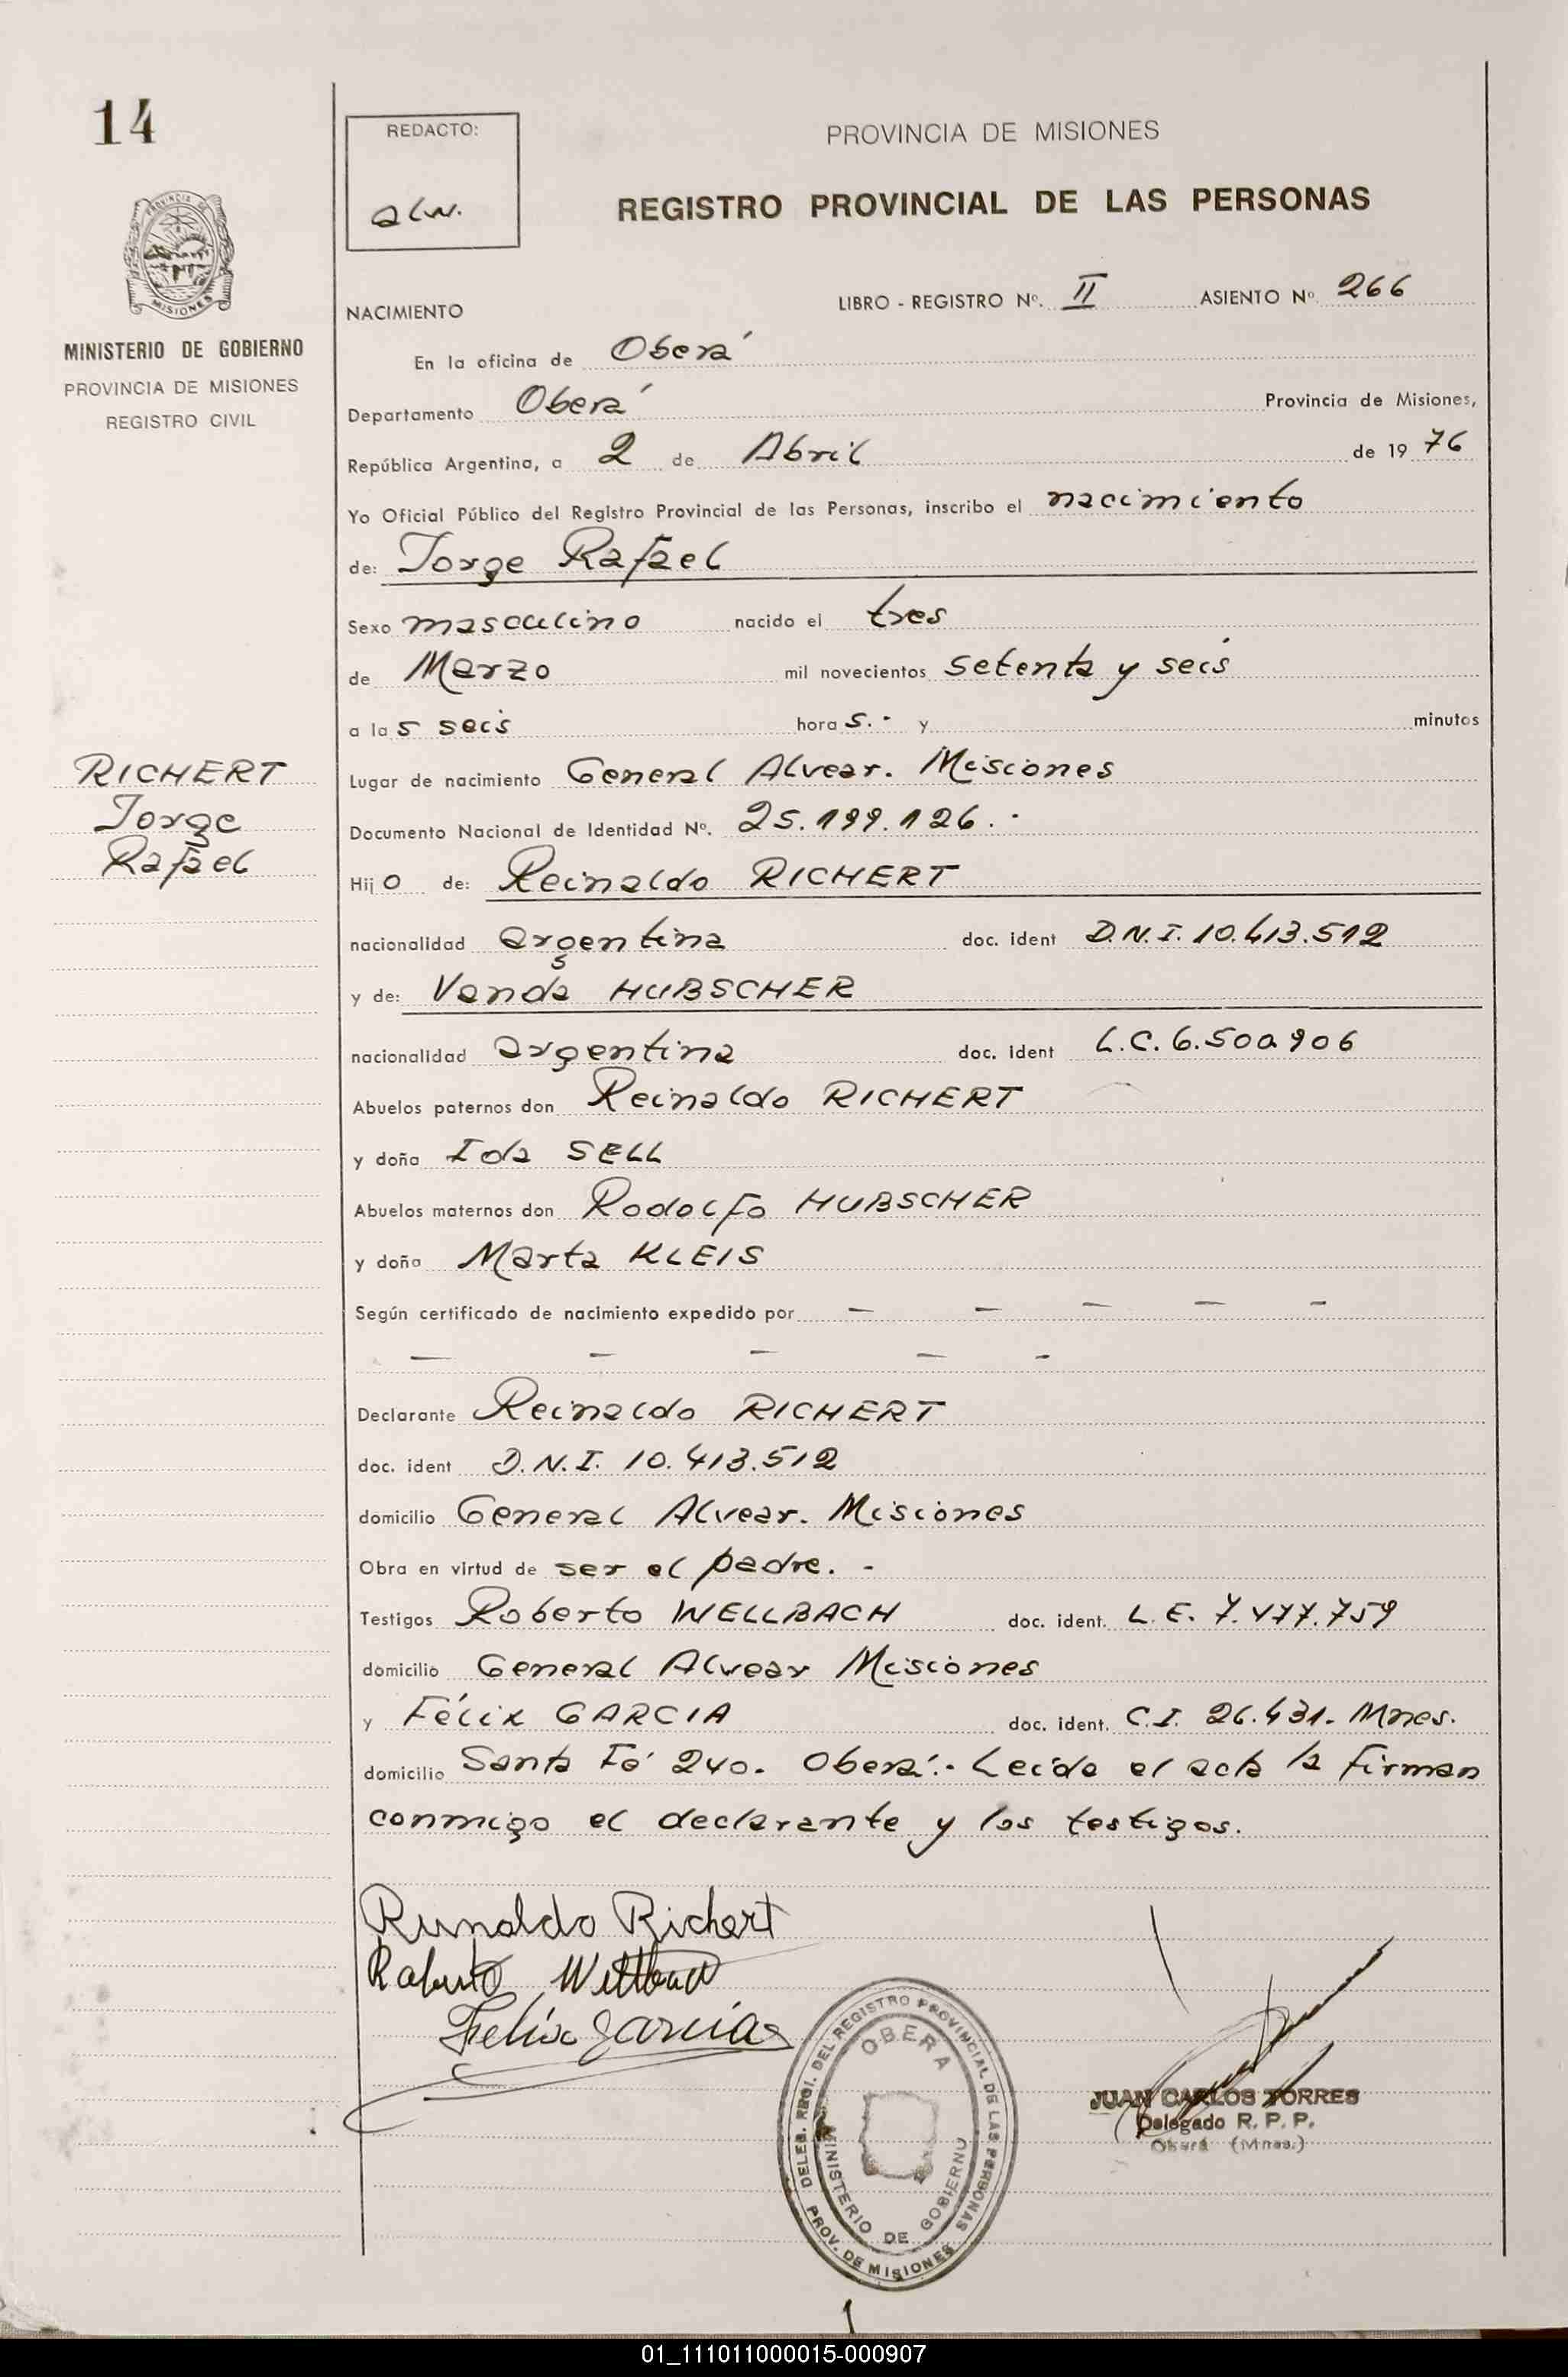 14
REDACTO:
alw.
PROVINCIA DE MISIONES
REGISTRO PROVINCIAL DE LAS PERSONAS
PROVINCIA DE
MISIONES
MINISTERIO DE GOBIERNO
PROVINCIA DE MISIONES
REGISTRO CIVIL
NACIMIENTO LIBRO - REGISTRO Nº. II ASIENTO Nº. 266
En la oficina de Oberá
Departamento Oberá Provincia de Misiones,
República Argentina, a 2 de Abril de 19 76
Yo Oficial Público del Registro Provincial de las Personas, inscribo el nacimiento
de: Jorge Rafael
Sexo masculino nacido el tres
de Marzo mil novecientos setenta y seis
a las seis horas.- y minutos
RICHERT
Jorge
Rafael
Lugar de nacimiento General Alvear. Misiones
Documento Nacional de Identidad Nº. 25.199.126.-
Hijo de: Reinaldo RICHERT
nacionalidad argentina doc. ident D.N.I. 10.413.512
y de: Vanda HUBSCHER
nacionalidad argentina doc. ident L.C. 6.500.906
Abuelos paternos don Reinaldo RICHERT
y doña Ida SELL
Abuelos maternos don Rodolfo HUBSCHER
y doña Marta KLEIS
Según certificado de nacimiento expedido por — — — — —
— — — — -
Declarante Reinaldo RICHERT
doc. ident D.N.I. 10.413.512
domicilio General Alvear. Misiones
Obra en virtud de ser el padre. -
Testigos Roberto WELLBACH doc. ident. L.E. 7.477.759
domicilio General Alvear Misiones
y Félix GARCIA doc. ident. C.I. 26.431. Mnes.
domicilio Santa Fé 240. Oberá.- Leída el acta la firman
conmigo el declarante y los testigos.
Reinaldo Richert
Roberto Wellbach
Felix Garcia
DELEG. REGI. DEL REGISTRO PROVINCIAL DE LAS PERSONAS
OBERA
MINISTERIO DE GOBIERNO
PROV. DE MISIONES
JUAN CARLOS TORRES
Delegado R. P. P.
Oberá (Mnes.)
01_111011000015-000907